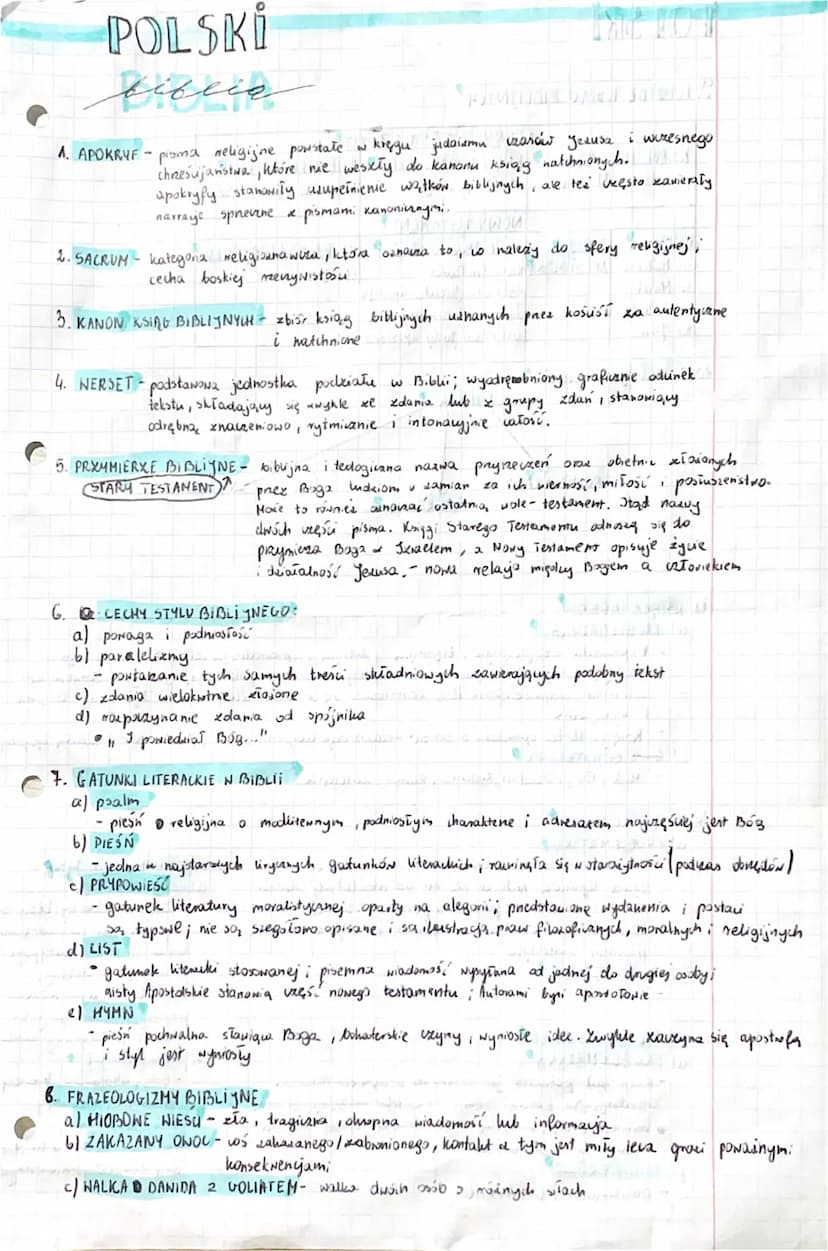 POLSKI
BIBLIA
biblia
1. APOKRYF - pisma religijne powstałe w kręgu judaizmu czasów Jezusa i wczesnego
chrześcijaństwa, które nie weszły do kanonu ksiąg natchnionych.
apokryfy stanowiły uzupełnienie wątków biblijnych, ale też często zawierały
narrację sprzeczne z pismami kanonicznymi.
2. SACRUM - kategoria religioznawcza, która oznacza to, co należy do sfery religijnej;
cecha boskiej rzeczywistości
3. KANON KSIĄG BIBLIJNYCH - zbiór ksiąg biblijnych uznanych przez kościół za autentyczne
i natchnione
4. WERSET - podstawowa jednostka podziału w Biblii; wyodrębniony graficznie odcinek
tekstu, składający się zwykle ze zdania lub z grupy zdań, stanowiący
odrębną znaczeniowo, rytmicznie i intonacyjnie całość.
5. PRZYMIERZE BIBLIJNE - biblijna i teologiczna nazwa przyrzeczeń oraz obietnic złożonych
(STARY TESTAMENT)↑ przez Boga ludziom w zamian za ich wierność, miłość i posłuszeństwo.
Może to również oznaczać ostatnią wolę - testament. Stąd nazwy
dwóch części pisma. Księgi Starego Testamentu odnoszą się do
przymierza Boga z Izraelem, a Nowy Testament opisuje życie
i działalność Jezusa. - nowa relacja między Bogiem a człowiekiem
6. CECHY STYLU BIBLIJNEGO:
a) powaga i podniosłość
b) paralelizmy
- powtarzanie tych samych treści składniowych zawierających podobny tekst
c) zdania wielokrotnie złożone
d) rozpoczynanie zdania od spójnika
• "I powiedział Bóg..."
7. GATUNKI LITERACKIE W BIBLII
a) psalm
- pieśń religijna o modlitewnym, podniosłym charakterze i adresatem najczęściej jest Bóg
b) PIEŚŃ
- jedna z najstarszych lirycznych gatunków literackich; rozwinęła się w starożytności (podczas obrzędów)
c) PRYPOWIEŚĆ
- gatunek literatury moralistycznej oparty na alegorii; przedstawione wydarzenia i postaci
są typowe; nie są szegołowo opisane i są ilustracją praw filozoficznych, moralnych i religijnych
d) LIST
• gatunek literacki stosowanej; pisemna wiadomość wysyłana od jednej do drugiej osoby;
Listy Apostolskie stanowią część nowego testamentu; Autorami byli apostołowie
e) HYMN
- pieśń pochwalna sławiąca Boga, bohaterskie czyny, wyniosłe idee. Zwykle zaczyna się apostrofą
i styl jest wyniosły
8. FRAZEOLOGIZMY BIBLIJNE
a) HIOBOWE WIEŚCI - zła, tragiczna, okropna wiadomość lub informacja
b) ZAKAZANY OWOC - coś zakazanego/zabronionego, kontakt z tym jest miły lecz grozi poważnymi
konsekwencjami
c) WALKA DAWIDA Z GOLIATEM - walka dwóch osób o różnych siłach